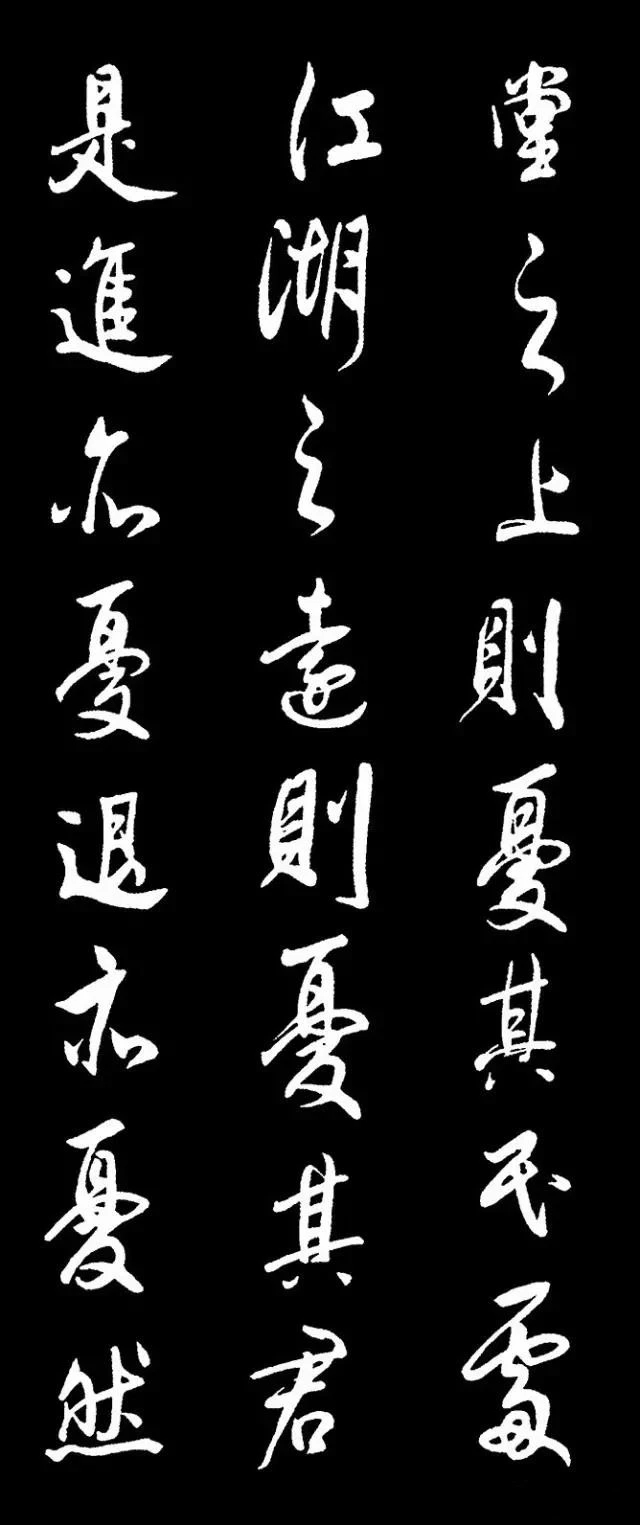 堂之上則憂其民處
江湖之遠則憂其君
是進亦憂退亦憂然